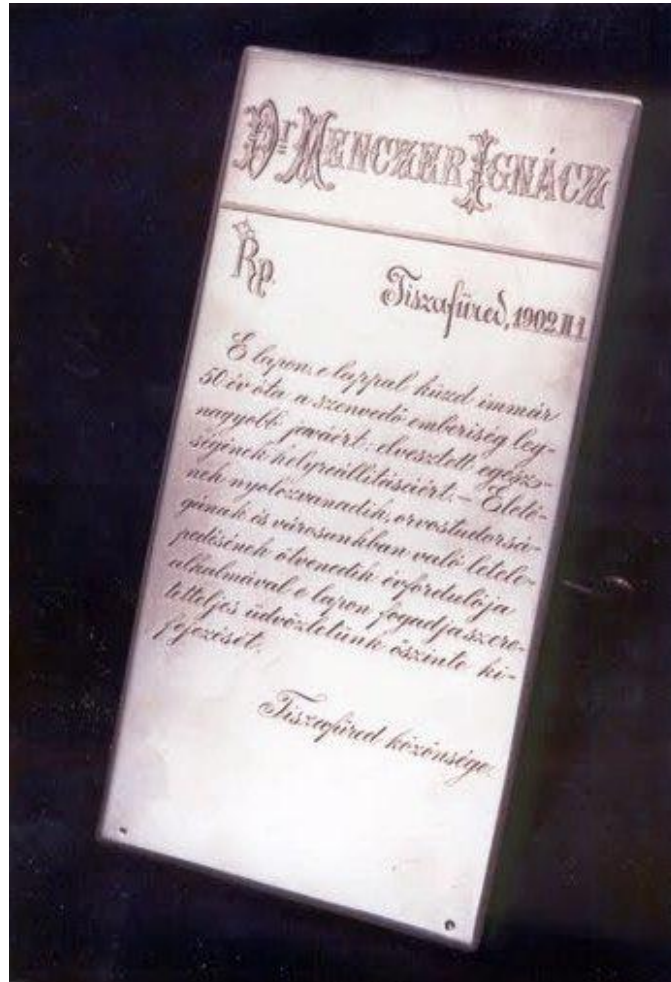 Dr. MENCZER IGNÁCZ
Rp.
Tiszafüred, 1902 II 1
E lapon, e lappal küzd immár
50 év óta a szenvedő emberiség leg-
nagyobb javáért: elvesztett egész-
ségének helyreállitásáért. – Életé-
nek nyolczvanadik, orvostudorsá-
gának és városunkban való letele-
pedésének ötvenedik évfordulója
alkalmával e lapon fogadja szere-
tetteljes üdvözletünk őszinte ki-
fejezését.
Tiszafüred közönsége.